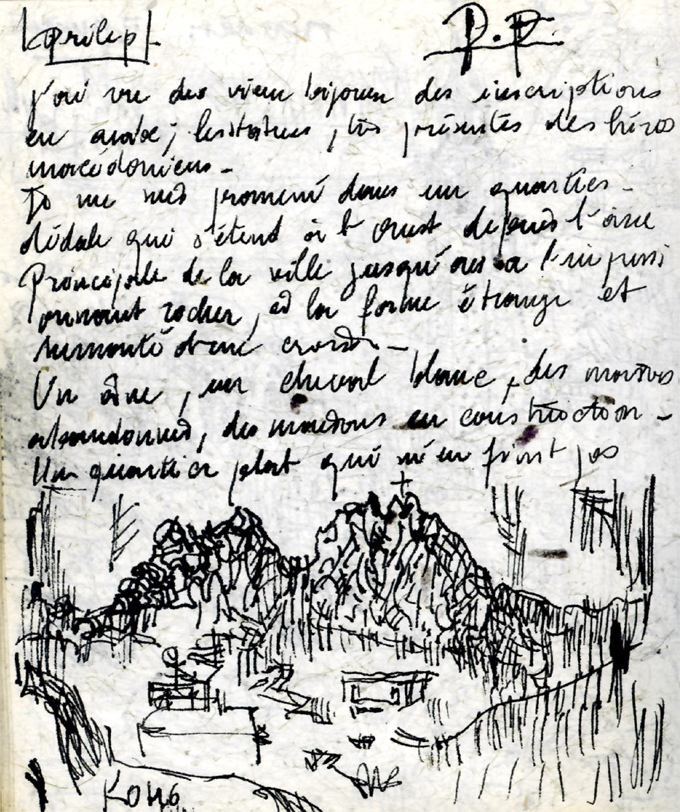 Prilep P.P.
J'ai vu des vieux bijoux des inscriptions
en arabe; les statues, très présentes des héros
macédoniens -
Je me suis promené dans un quartier -
dédale qui s'étend à l'ouest depuis l'axe
principale de la ville jusqu'à l'impressi
onnant rocher, à la forme étrange et
surmonté d'une croix -
Un âne, un cheval blanc, des maisons
abandonnées, des maisons en construction -
Un quartier plat qui n'en finit pas